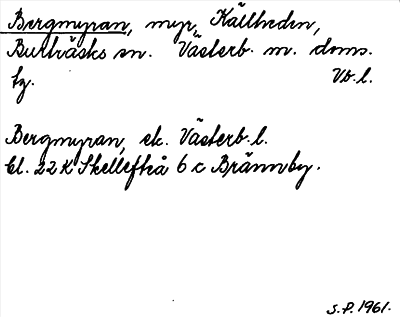 Bergmyran, myr, Källheden,
Burträsks sn. Västerb. m. doms.
fg. Vb. l.
Bergmyran, ek. Västerb. l.
bl. 22 K Skellefteå 6 c Brännby.
S.P. 1961.